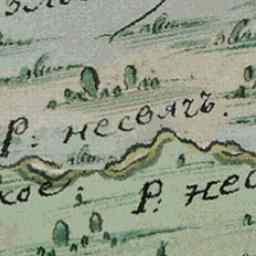 Р: несвачъ.
кое:
Р: нес